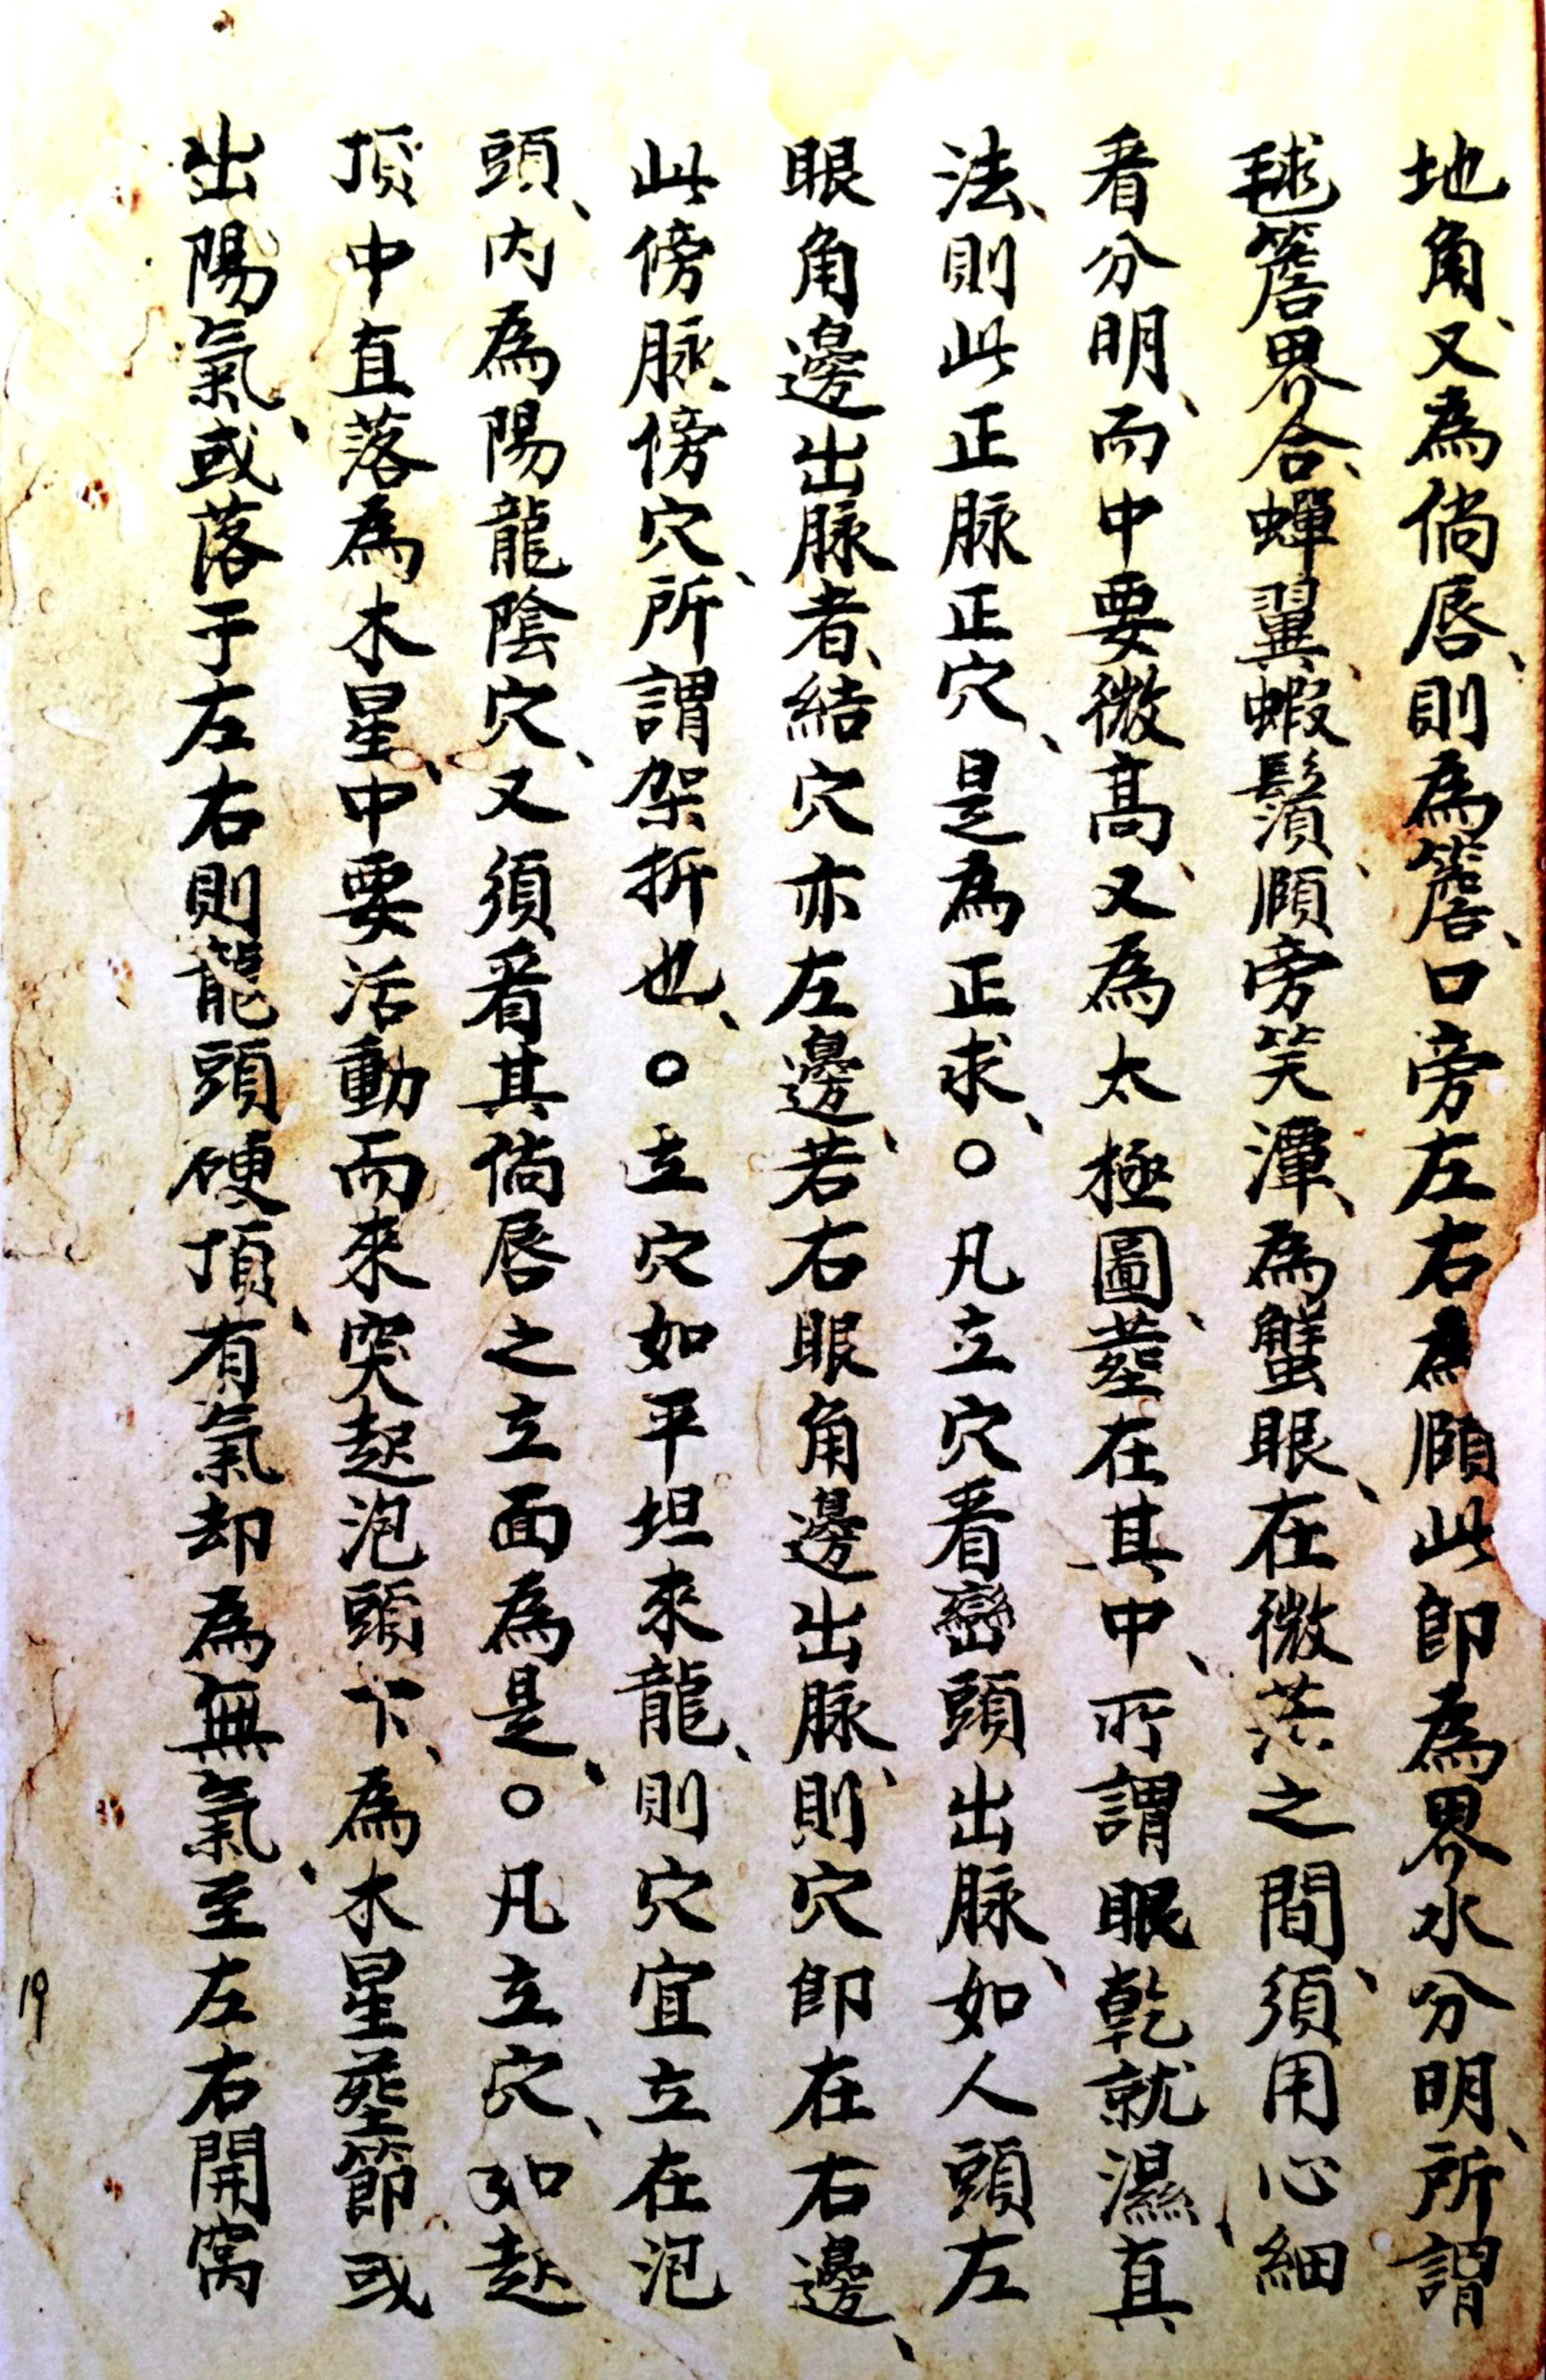 地角、又為倘唇、則為簷、口旁左右為頤此即為界水分明、所謂
毬簷界合、蟬翼、蝦鬚、頤旁笑潭、為蟹眼、在微茫之間、須用心細
看分明、而中要微高、又為太極圖、葬在其中、所謂眼乾就濕、真
法、則此正脉正穴、是為正求、○凡立穴看巒頭出脉、如人頭左
眼角邊出脉者、結穴亦左邊、若右眼角邊出脉、則穴即在右邊、
此傍脉、傍穴、所謂架折也、○立穴如平坦來龍、則穴宜立在泡
頭、内為陽龍陰穴、又須看其倘唇之立面為是、○凡立穴、如起
頂中直落為木星、中要活動而來突起泡頭下、為木星葬節或
出陽氣、或落于左右則龍頭硬頂、有氣却為無氣、至左右開窩
19